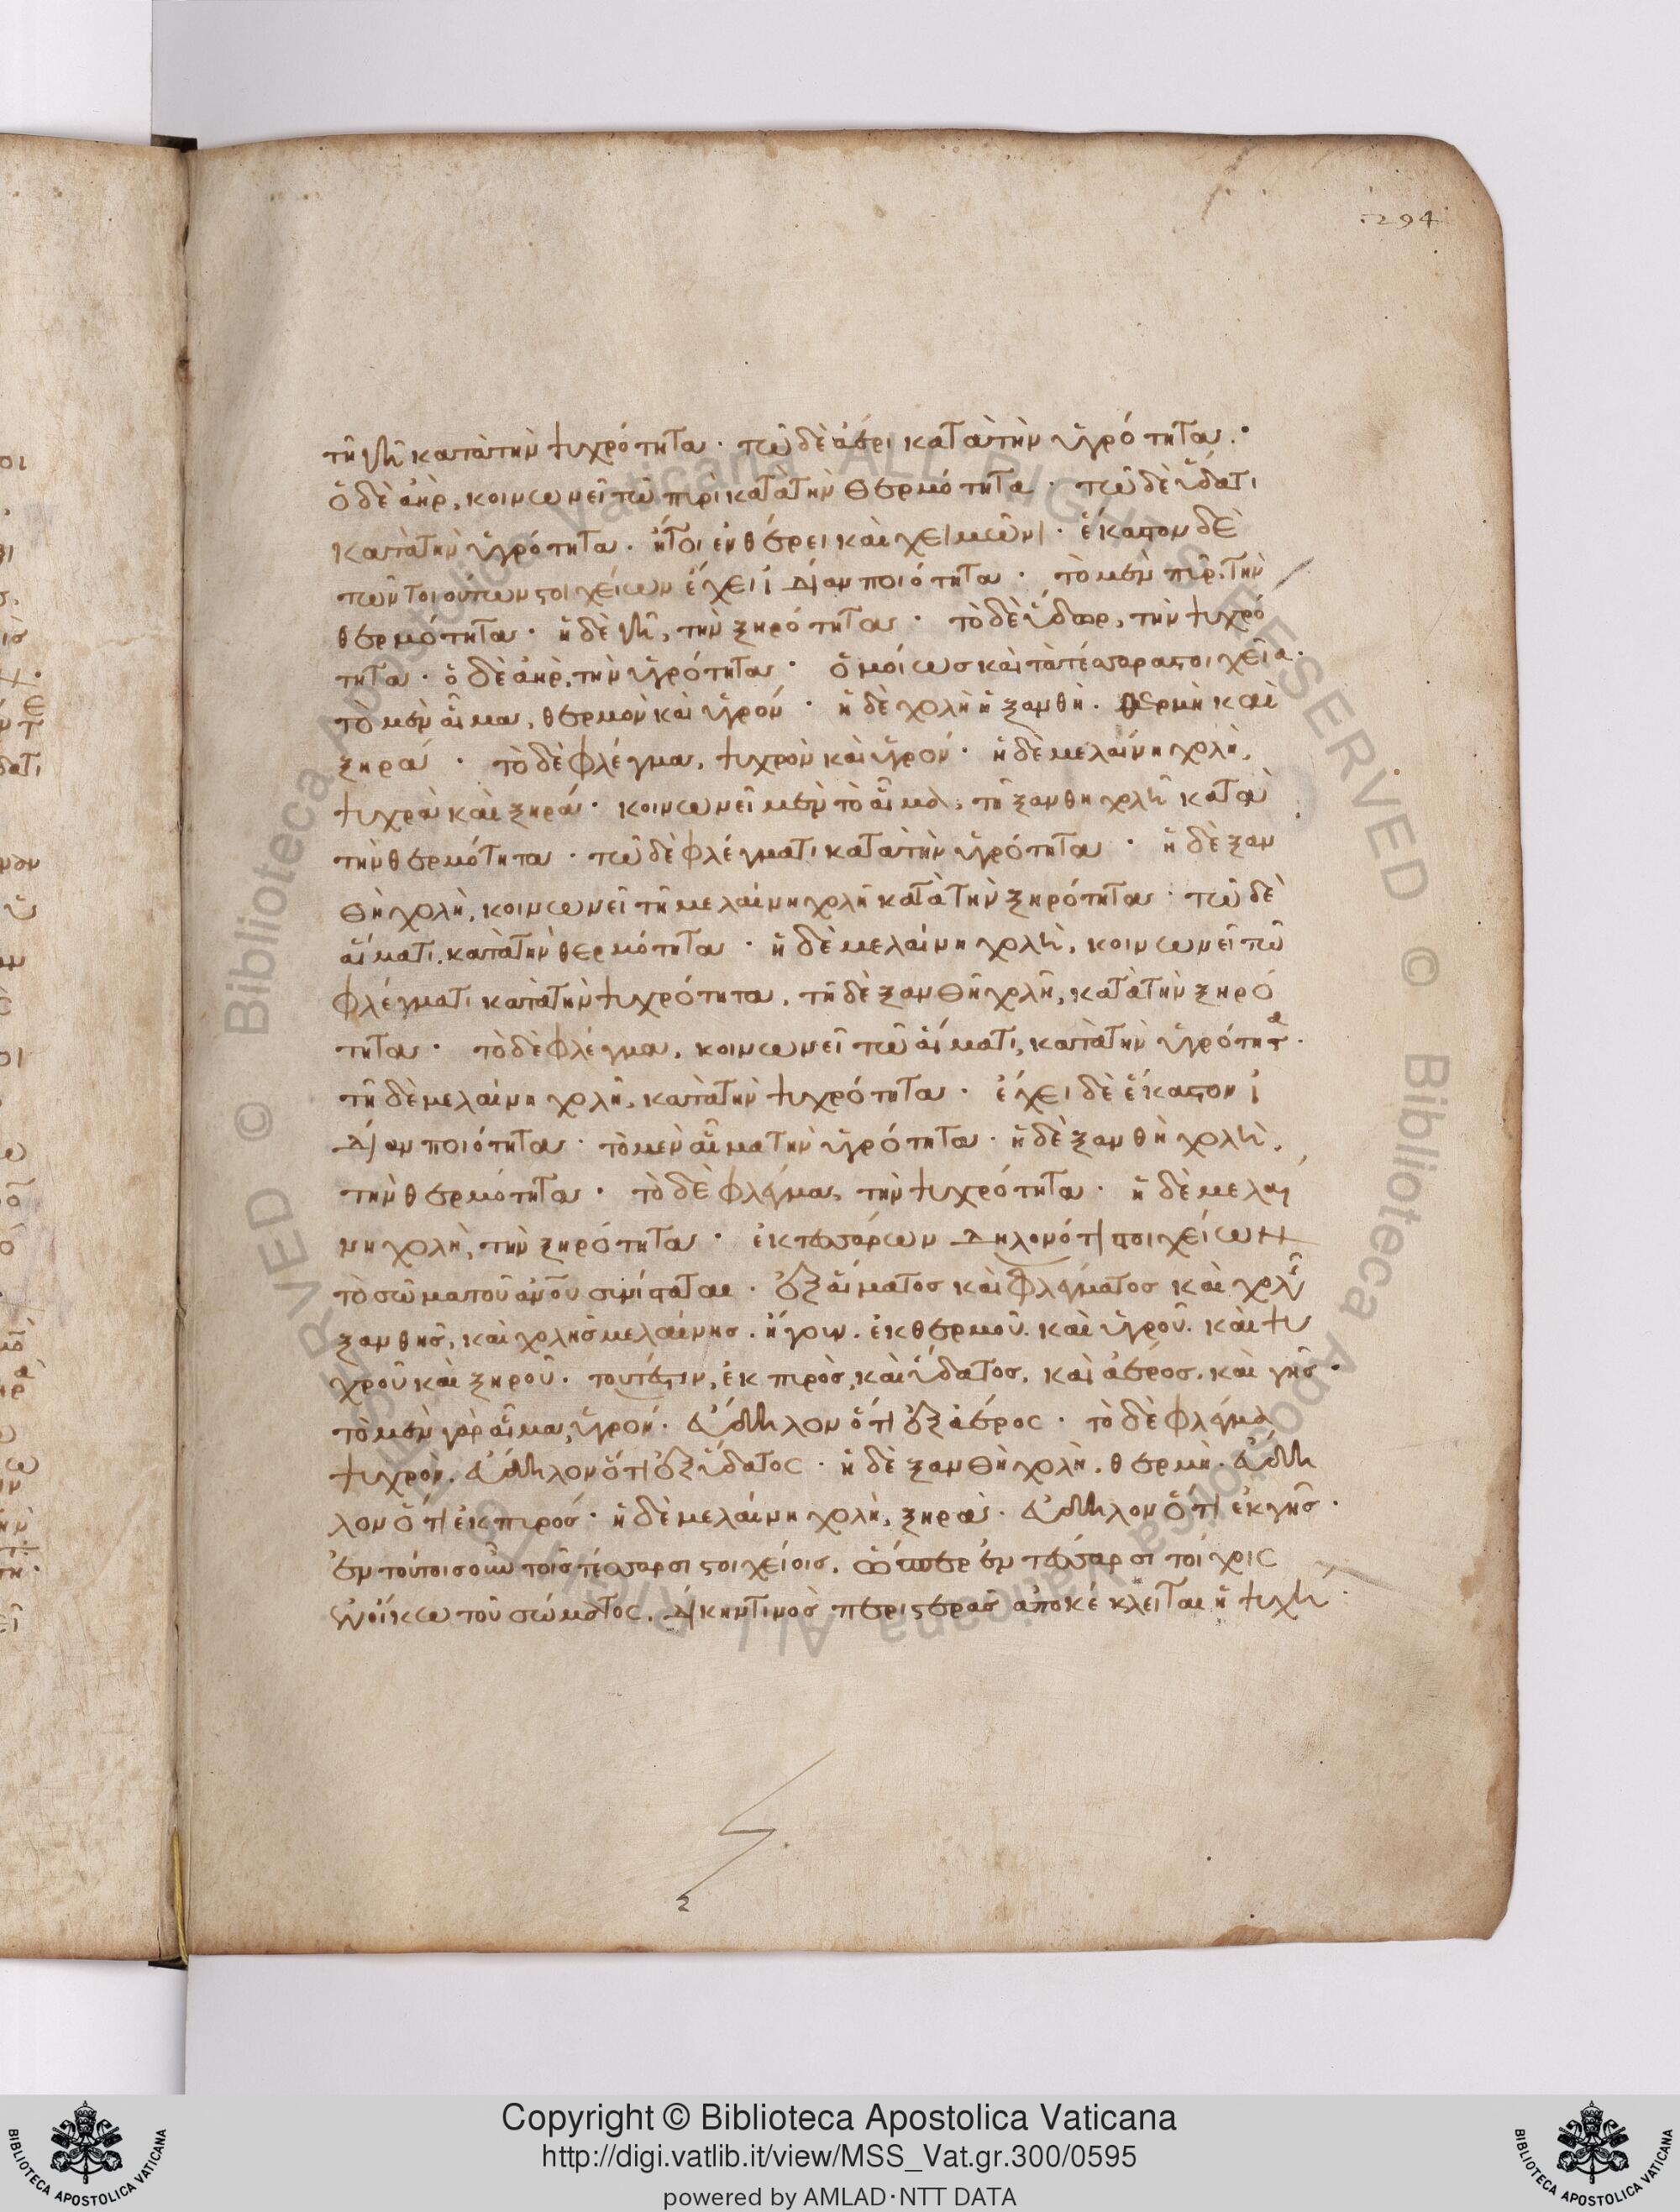 294
τῆ γῆ κατὰ τὴν ψυχρότητα · τῶ δὲ ἀέρι κατὰ τὴν ὑγρότητα .
ὁ δὲ ἀὴρ, κοινωνεῖ τῶ πυρὶ κατὰ τὴν θερμότητα · τῶ δὲ ὕδατι
κατὰ τὴν ὑγρότητα · ἤτοι ἐν θέρει καὶ χειμῶνι · ἕκαστον δὲ
τῶν τοιούτων στοιχείων ἔχει ἰδίαν ποιότητα · τὸ μὲν πῦρ, τὴν
θερμότητα · ἡ δὲ γῆ, τὴν ξηρότητα · τὸ δὲ ὕδωρ, τὴν ψυχρό
τητα · ὁ δὲ ἀὴρ, τὴν ὑγρότητα · ὁμοίως καὶ τὰ τέσσαρα στοιχεῖα ·
τὸ μὲν αἷμα, θερμὸν καὶ ὑγρόν · ἡ δὲ χολὴ ἡ ξανθὴ · θερμὴ καὶ
ξηρά · τὸ δὲ φλέγμα, ψυχρὸν καὶ ὑγρόν · ἡ δὲ μελαίνη χολὴ,
ψυχρὰ καὶ ξηρά · κοινωνεῖ μὲν τὸ αἷμα, τῆ ξανθῆ χολῆ κατὰ
τὴν θερμότητα · τῶ δὲ φλέγματι κατὰ τὴν ὑγρότητα · ἡ δὲ ξαν
θὴ χολὴ, κοινωνεῖ τῆ μελαίνη χολῆ κατὰ τὴν ξηρότητα · τῶ δὲ
αἵματι, κατὰ τὴν θερμότητα · ἡ δὲ μελαίνη χολὴ, κοινωνεῖ τῶ
φλέγματι κατὰ τὴν ψυχρότητα, τῆ δὲ ξανθῆ χολῆ, κατὰ τὴν ξηρό
τητα · τὸ δὲ φλέγμα, κοινωνεῖ τῶ αἵματι, κατὰ τὴν ὑγρότητα ·
τῆ δὲ μελαίνη χολῆ, κατὰ τὴν ψυχρότητα · ἔχει δὲ ἕκαστον ἰ
δίαν ποιότητα · τὸ μὲν αἷμα τὴν ὑγρότητα · ἡ δὲ ξανθὴ χολὴ,
τὴν θερμότητα · τὸ δὲ φλέγμα, τὴν ψυχρότητα · ἡ δὲ μελαί
νη χολὴ, τὴν ξηρότητα · ἐκ τεσσάρων δηλονότι στοιχείων
τὸ σῶμα τοῦ ἀνου συνίσταται · ἐξ αἵματος καὶ φλέγματος καὶ χολῆς
ξανθῆς, καὶ χολῆς μελαίνης · ἤγουν · ἐκ θερμοῦ · καὶ ὑγροῦ · καὶ ψυ
χροῦ καὶ ξηροῦ · τουτέστιν, ἐκ πυρὸς, καὶ ὕδατος, καὶ ἀέρος, καὶ γῆς ·
τὸ μὲν γὰρ αἷμα, ὑγρόν · εὔδηλον ὅτι ἐξ ἀέρος · τὸ δὲ φλέγμα
ψυχρὸν · εὔδηλον ὅτι ἐξ ὕδατος · ἡ δὲ ξανθὴ χολὴ, θερμὴ · εὔδη
λον ὅτι ἐκ πυρός · ἡ δὲ μελαίνη χολὴ, ξηρὰ · εὔδηλον ὅτι ἐκ γῆς ·
ἐν τούτοις οὖν τοῖς τέσσαρσι στοιχείοις, ὥσπερ ἐν τέσσαρσι τοίχοις
οἴκω τοῦ σώματος, δίκην τινὸς περιστερᾶς ἀποκέκλεισται ἡ ψυχή ·
Copyright © Biblioteca Apostolica Vaticana
http://digi.vatlib.it/view/MSS_Vat.gr.300/0595
powered by AMLAD·NTT DATA